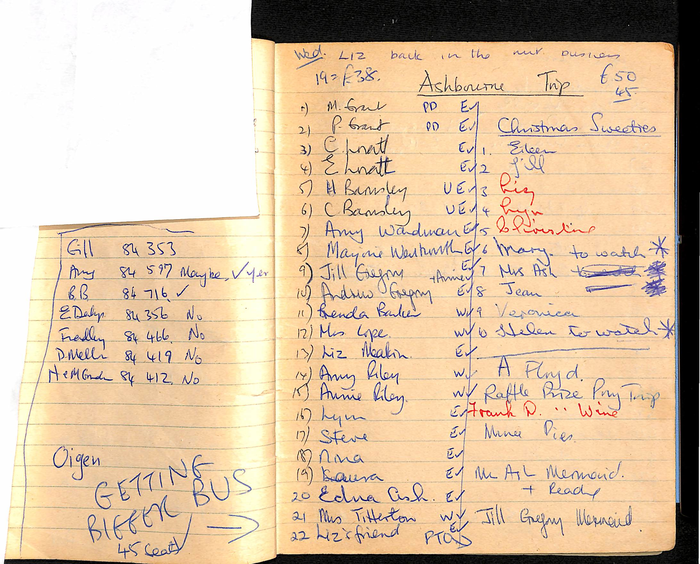 Wed. Liz back in the nut business
19 = £38.
Ashbourne Trip
£50
45
1) M. Grant PD E✓
2) P. Grant PD E✓
3) C. E✓
4) E E✓
5) H Barnsley U E✓
6) C Barnsley U E✓
7) Amy Wardman E✓
8) Marjorie Wentworth E✓
9) Jill Gregory + Annie E✓
10) Andrew Gregory E✓
11) Brenda Barker W✓
12) Mrs Cope W✓
13) Liz Meakin. E✓
14) Amy Riley W✓
15) Annie Riley. W✓
16) Lynn E✓
17) Steve E✓
18) Nina E✓
19) Laura E✓
20 Edna Cash. E✓
21 Mrs Titterton W✓
22 Liz's friend E✓
PTO
Christmas Sweeties
1. Eileen
2 Jill
3 Liz
4 Lyn
5 Christine
6 Mary. to watch *
7 Mrs Ash
8 Jean
9 Veronica
10 Helen to watch *
A Floyd.
Raffle Prize Trip
Frank D. " Wine
Mince Pies.
Mr Ash Mermaid.
+ Ready
Jill Gregory Mermaid
Gill 84 353
Amy 84 597 Maybe, ✓ yes
B.B 84 716 ✓
84 356 No
84 466. No
84 419 No
84 412. No
Oigen
GETTING
BIGGER BUS
45 Seat →